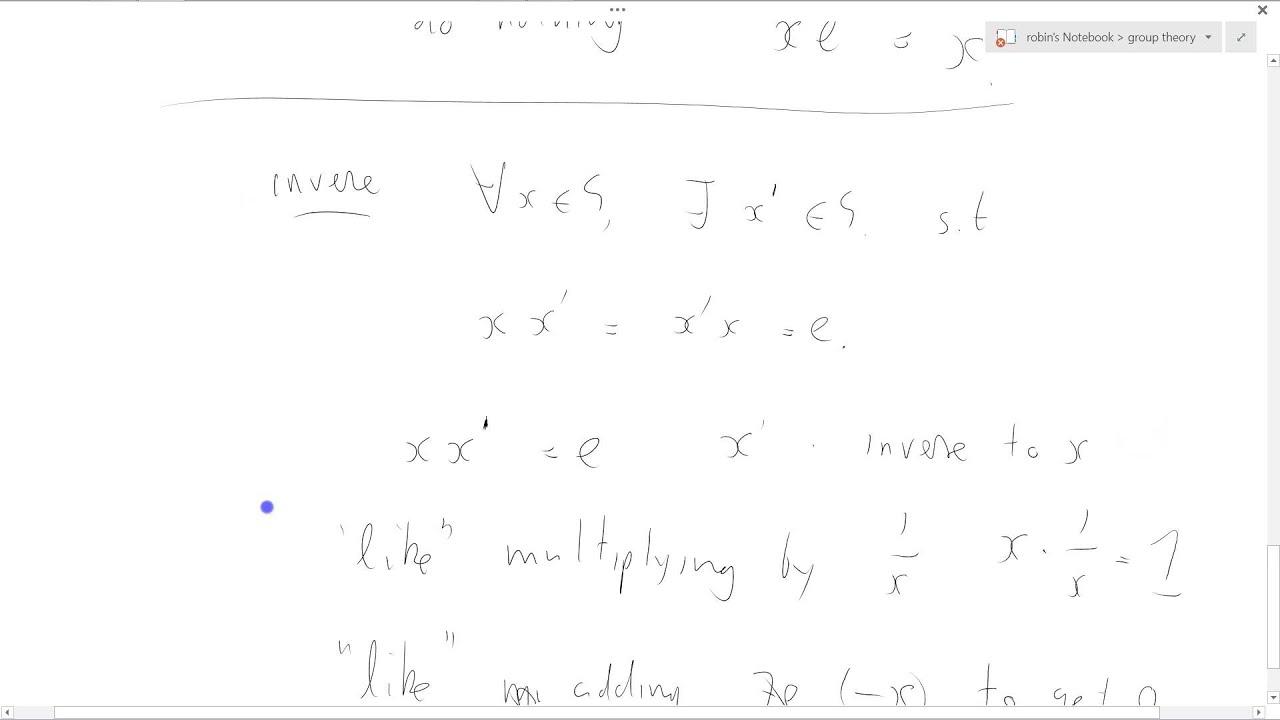 do nothing xe = x.
robin's Notebook > group theory
invere ∀x∈S, ∃ x' ∈ S. s.t
x x' = x'x = e.
x x' = e x' . invere to x
'like" multiplying by 1/x x · 1/x = 1
"like" adding (-x) to get 0